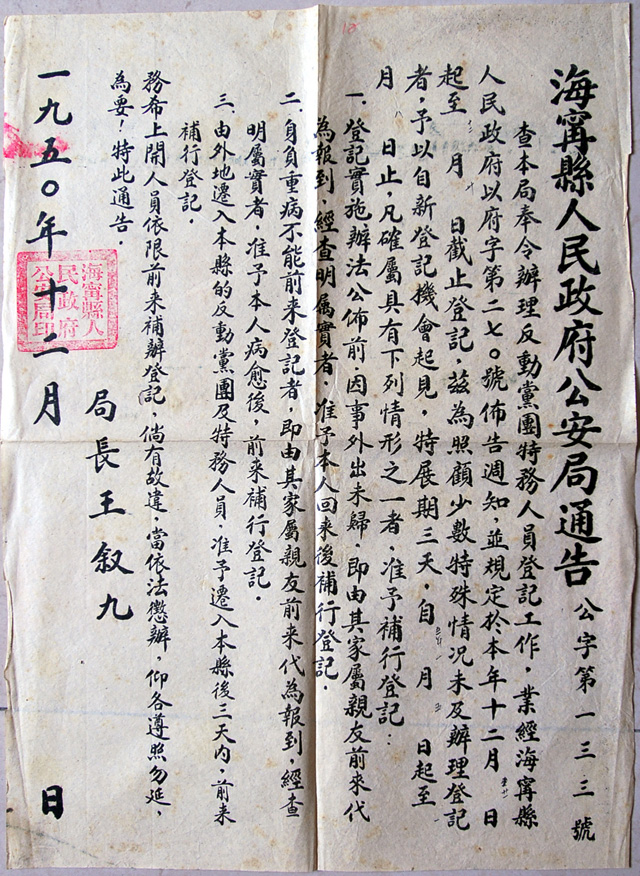 海寧縣人民政府公安局通告 公字第一三三號
查本局奉令辦理反動黨團特務人員登記工作，業經海寧縣
人民政府以府字第二七〇號佈告週知，並規定於本年十二月 日
起至 月 日截止登記，茲為照顧少數特殊情況未及辦理登記
者，予以自新登記機會起見，特展期三天，自 月 日起至
月 日止，凡確屬具有下列情形之一者，准予補行登記：
一．登記實施辦法公佈前，因事外出未歸，即由其家屬親友前來代
為報到，經查明屬實者，准予本人回來後補行登記．
二．身負重病不能前來登記者，即由其家屬親友前來代為報到，經查
明屬實者，准予本人病愈後，前來補行登記．
三．由外地遷入本縣的反動黨團及特務人員，准予遷入本縣後三天內，前來
補行登記．
務希上開人員依限前來補辦登記，倘有故違，當依法懲辦，仰各遵照勿延，
為要！特此通告．
局長王叙九
一九五〇年十二月 日
海寧縣人
民政府
公安局印